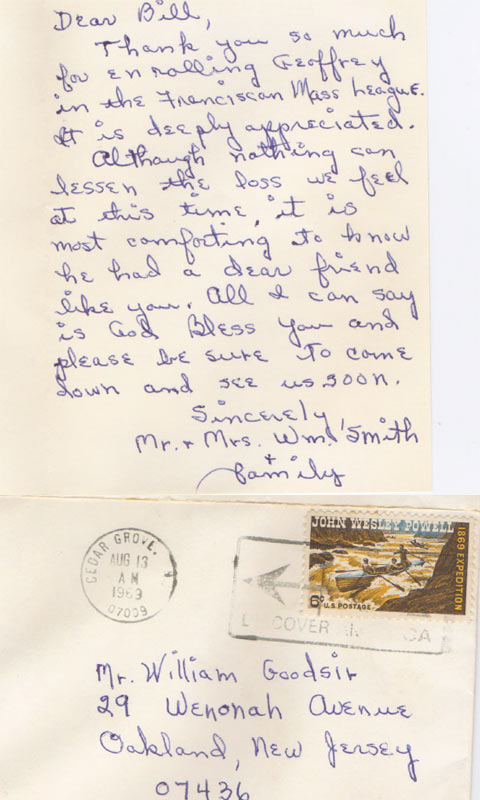 Dear Bill,
Thank you so much
for enrolling Geoffrey
in the Franciscan Mass League.
It is deeply appreciated.
Although nothing can
lessen the loss we feel
at this time, it is
most comforting to know
he had a dear friend
like you. All I can say
is God Bless you and
please be sure to come
down and see us soon.
Sincerely
Mr. + Mrs. Wm. Smith
+
family
CEDAR GROVE,
AUG 13
AM
1969
07009
JOHN WESLEY POWELL
1869 EXPEDITION
6c U.S. POSTAGE
Mr. William Goodsir
29 Wenonah Avenue
Oakland, New Jersey
07436